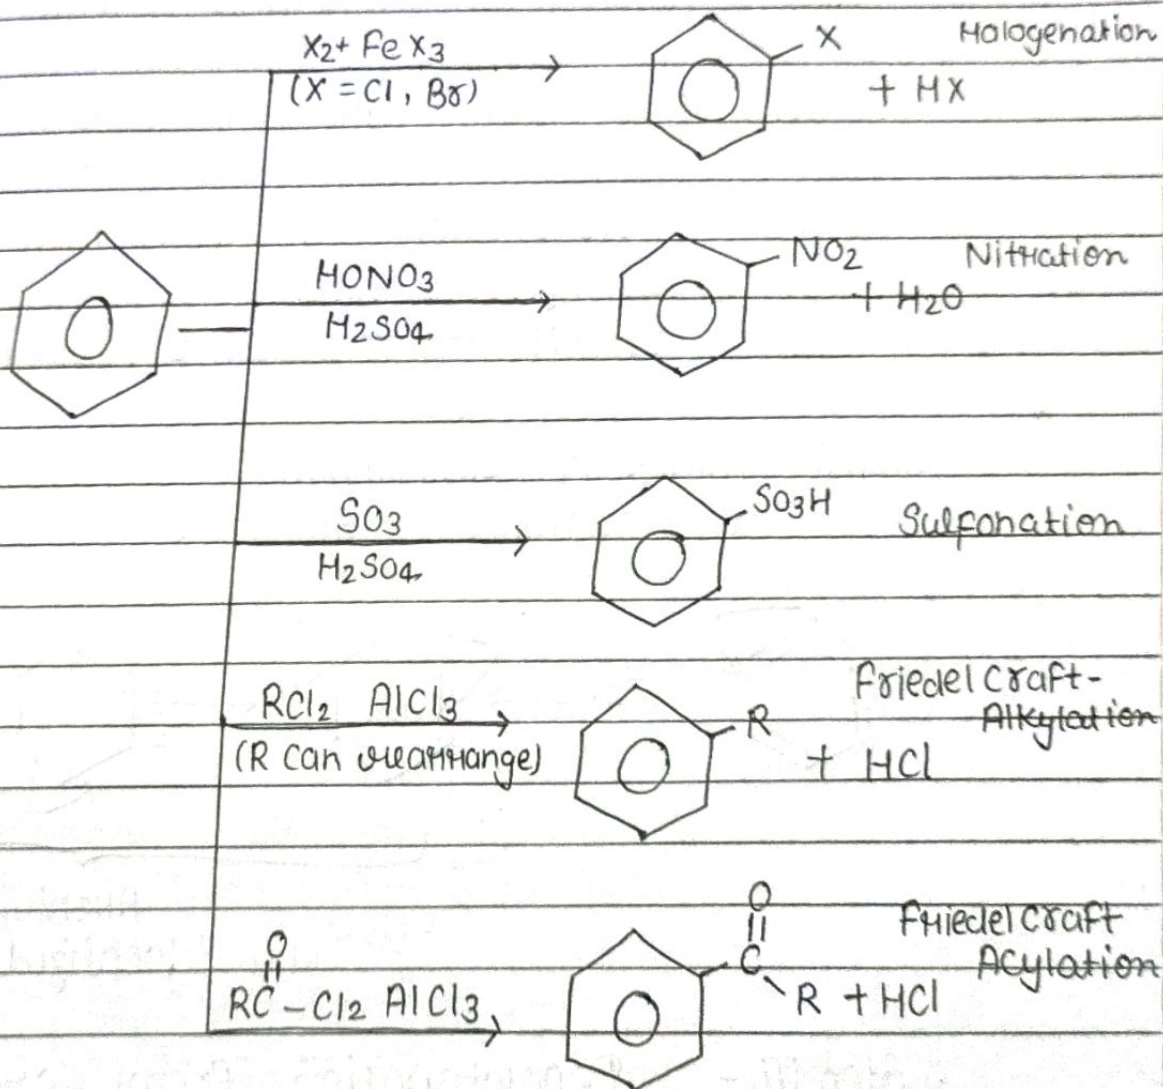 X2+ FeX3
(X = Cl, Br)
X
+ HX
Halogenation
HONO3
H2SO4
NO2
+ H2O
Nitration
SO3
H2SO4
SO3H
Sulfonation
RCl2 AlCl3
(R can rearrange)
R
+ HCl
Friedel Craft-
Alkylation
O
RC-Cl2 AlCl3
O
C
R + HCl
Friedel Craft
Acylation